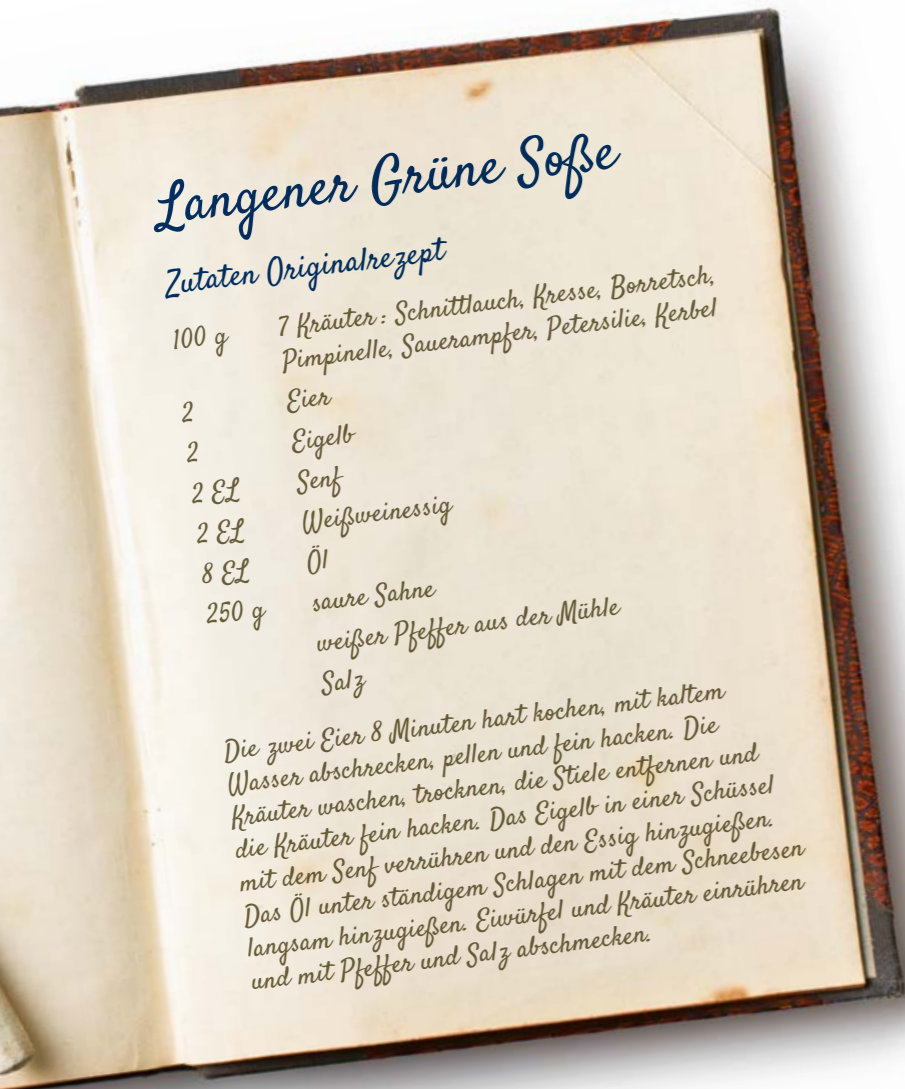 Langener Grüne Soße
Zutaten Originalrezept
100 g 7 Kräuter: Schnittlauch, Kresse, Borretsch,
Pimpinelle, Sauerampfer, Petersilie, Kerbel
2 Eier
2 Eigelb
2 EL Senf
2 EL Weißweinessig
8 EL Öl
250 g saure Sahne
weißer Pfeffer aus der Mühle
Salz
Die zwei Eier 8 Minuten hart kochen, mit kaltem
Wasser abschrecken, pellen und fein hacken. Die
Kräuter waschen, trocknen, die Stiele entfernen und
die Kräuter fein hacken. Das Eigelb in einer Schüssel
mit dem Senf verrühren und den Essig hinzugießen.
Das Öl unter ständigem Schlagen mit dem Schneebesen
langsam hinzugießen. Eiwürfel und Kräuter einrühren
und mit Pfeffer und Salz abschmecken.